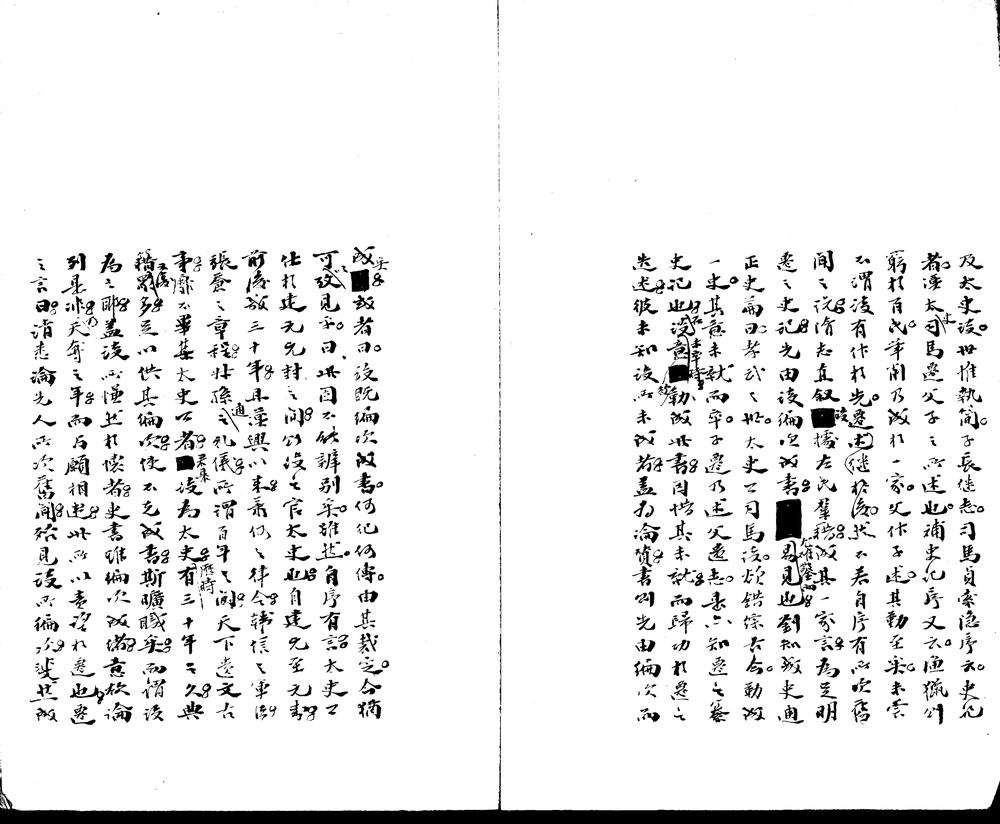 及太史談世惟執簡子長繼志司馬貞索隱序云史記
者漢太史司馬遷父子之所述也補史記序又云漁獵則
窮於百氏筆削乃成於一家父作子述其勤至矣未嘗
不謂談有作於先遷述繼於後然不若自序有所次舊
聞之說隋志直叙談據左氏等籍成其一家言為足明
遷之史記先由談編次成書尤確鑿易見也劉知幾史通
正史篇曰孝武之世太史公司馬談欲錯綜古今勒成
一史其意未就而卒子遷乃述父遺志是亦知遷之纂
史記也談在未卒時意勒成此書因惜其未就而歸功於遷之
造述彼未知談所未成者蓋為論贊書則先由編次而
成矣或者曰談既編次成書何紀何傳由其裁定今猶
可攷見乎曰此固不能辨別矣雖然自序有言太史公
仕於建元元封之間公談之官太史也自建元至元封
前後數三十年其漢興以來蕭何之律令韓信之軍法
張蒼之章程叔孫通之禮儀所謂百年之間天下遺文古
事靡不畢集太史公者是來談為太史有歷時三十年之久典
籍又復多足以供其編次使不克成書斯曠職矣而謂談
為之耶蓋談所慊然於懷者史書雖編次成緒意欲論
列是非天奪之年而乃與願相違此所以責望於遷也遷
之言曰請悉論先人所次舊聞殆見談所編次斐然成